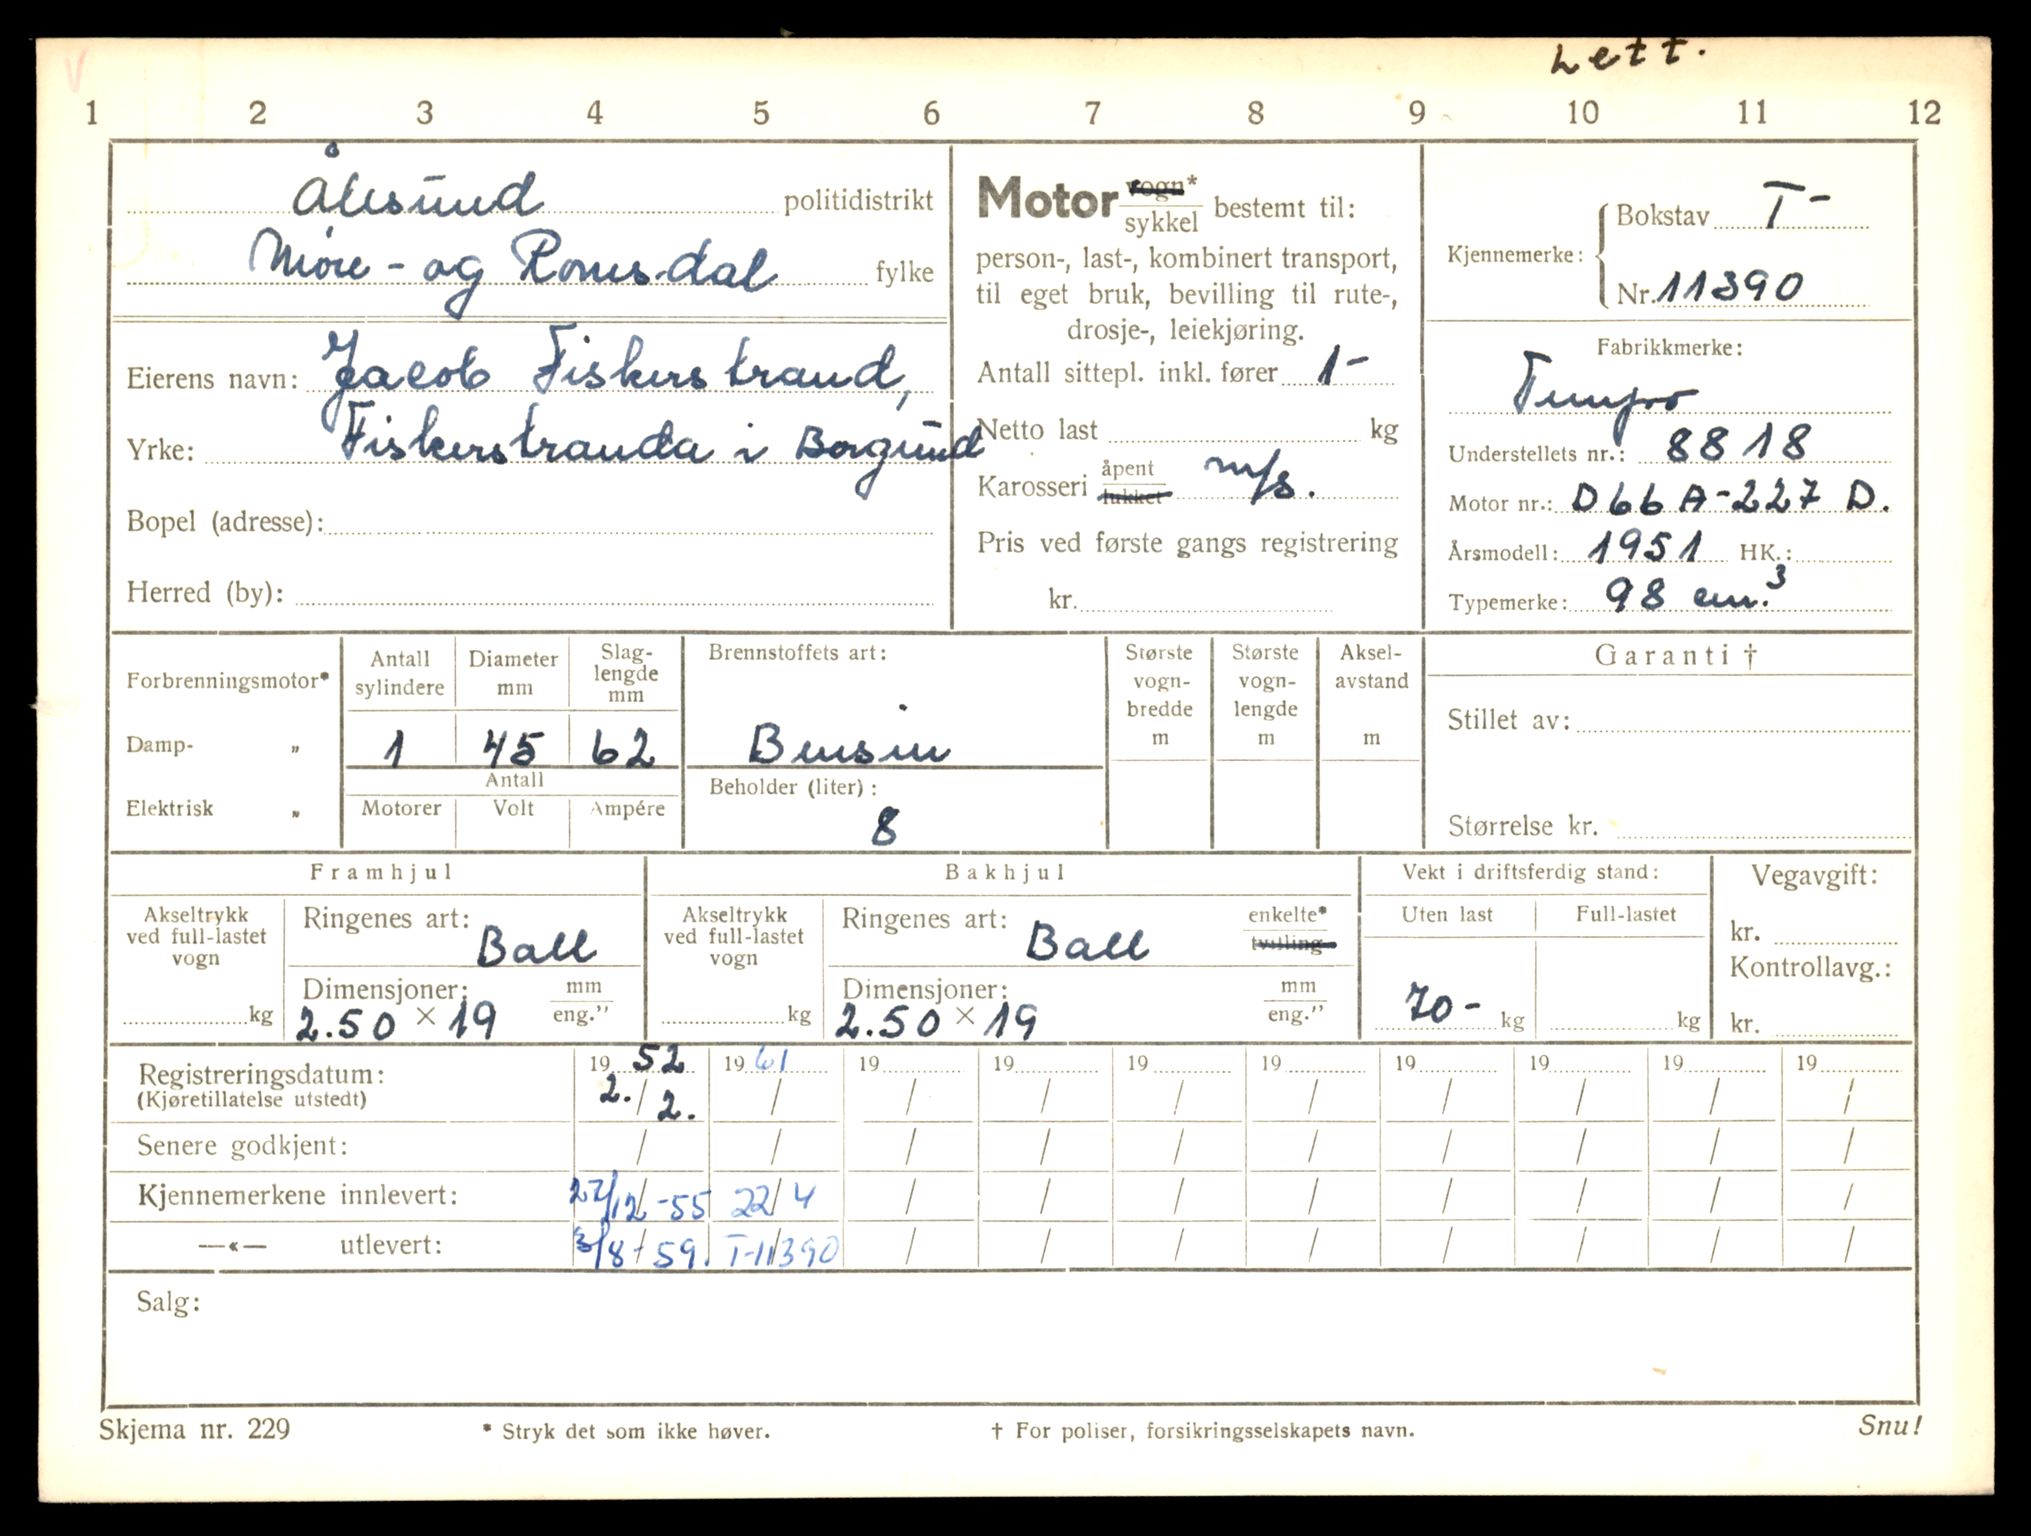 Lett.
1 2 3 4 5 6 7 8 9 10 11 12
Ålesund politidistrikt
Møre - og Romsdal fylke
Eierens navn: Jacob Fiskerstrand,
Yrke: Fiskerstranda i Borgund
Bopel (adresse):
Herred (by):
Motor vogn*
sykkel bestemt til:
person-, last-, kombinert transport,
til eget bruk, bevilling til rute-,
drosje-, leiekjøring.
Antall sittepl. inkl. fører 1-
Netto last kg
Karosseri åpent
lukket m/s.
Pris ved første gangs registrering
kr.
Kjennemerke: Bokstav T-
Nr. 11390
Fabrikkmerke:
Tempo
Understellets nr.: 8818
Motor nr.: D66A-227 D.
Årsmodell: 1951 HK.:
Typemerke: 98 cm.³
Forbrenningsmotor*
Damp- „
Elektrisk „
Antall sylindere Diameter mm Slag-lengde mm
1 45 62
Antall
Motorer Volt Ampére
Brennstoffets art:
Bensin
Beholder (liter):
8
Største vogn-bredde m
Største vogn-lengde m
Aksel-avstand m
Garanti †
Stillet av:
Størrelse kr.
Framhjul
Akseltrykk
ved full-lastet
vogn
kg
Ringenes art: Ball
Dimensjoner: mm
2.50 × 19 eng."
Bakhjul
Akseltrykk
ved full-lastet
vogn
kg
Ringenes art: Ball enkelte*
tvilling
Dimensjoner: mm
2.50 × 19 eng."
Vekt i driftsferdig stand:
Uten last Full-lastet
70- kg kg
Vegavgift:
kr.
Kontrollavg.:
kr.
Registreringsdatum: 19 52 19 61 19 19 19 19 19 19 19 19
(Kjøretillatelse utstedt) 2./2. / / / / / / / / /
Senere godkjent: / / / / / / / / / /
Kjennemerkene innlevert: 27/12-55 22/4 / / / / / / / /
—«— utlevert: 3/8-59. T-11390 / / / / / / / /
Salg:
Skjema nr. 229 * Stryk det som ikke høver. † For poliser, forsikringsselskapets navn. Snu!